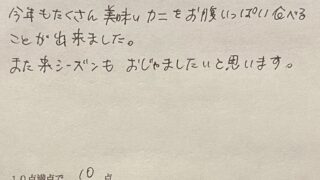 今年もたくさん美味いカニをお腹いっぱい食べる
ことが出来ました。
また来シーズンも おじゃましたいと思います。
10点満点で 10 点